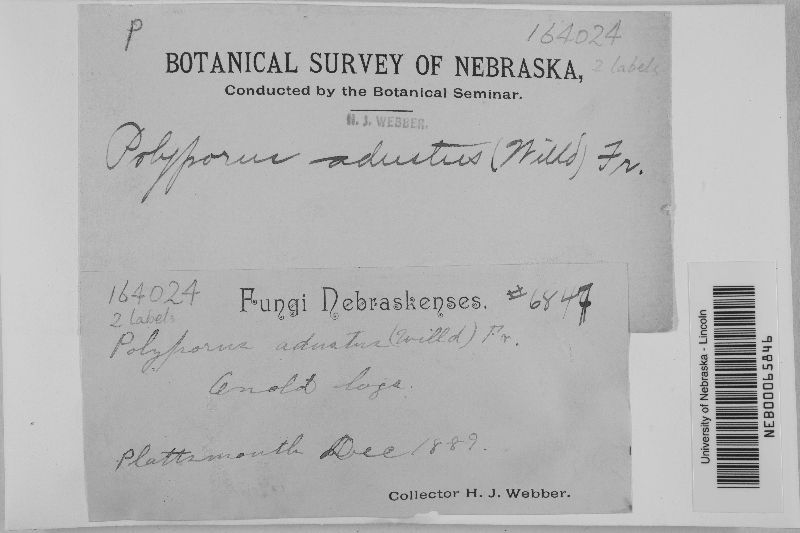 P
164024
2 labels
BOTANICAL SURVEY OF NEBRASKA,
Conducted by the Botanical Seminar.
H. J. WEBBER.
Polyporus adustus (Willd) Fr.
164024
2 labels
Fungi Nebraskenses. #6847
Polyporus adustus (Willd) Fr.
On old logs.
Plattsmouth Dec 1889.
Collector H. J. Webber.
University of Nebraska - Lincoln
NEB00065846